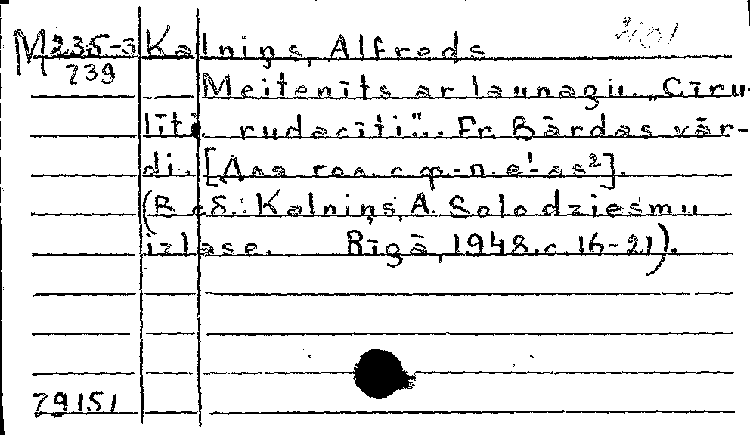 M 235-3 Kalniņš, Alfreds
239
Meitenīts ar launagu. „Cīru-
līti rudacīti". Fr. Bārdas vār-
di. [Для гол. с ф.-п. e¹-as²].
(В сб.: Kalniņš, A. Solo dziesmu
izlase. Rīgā, 1948. с. 16-21).
79151